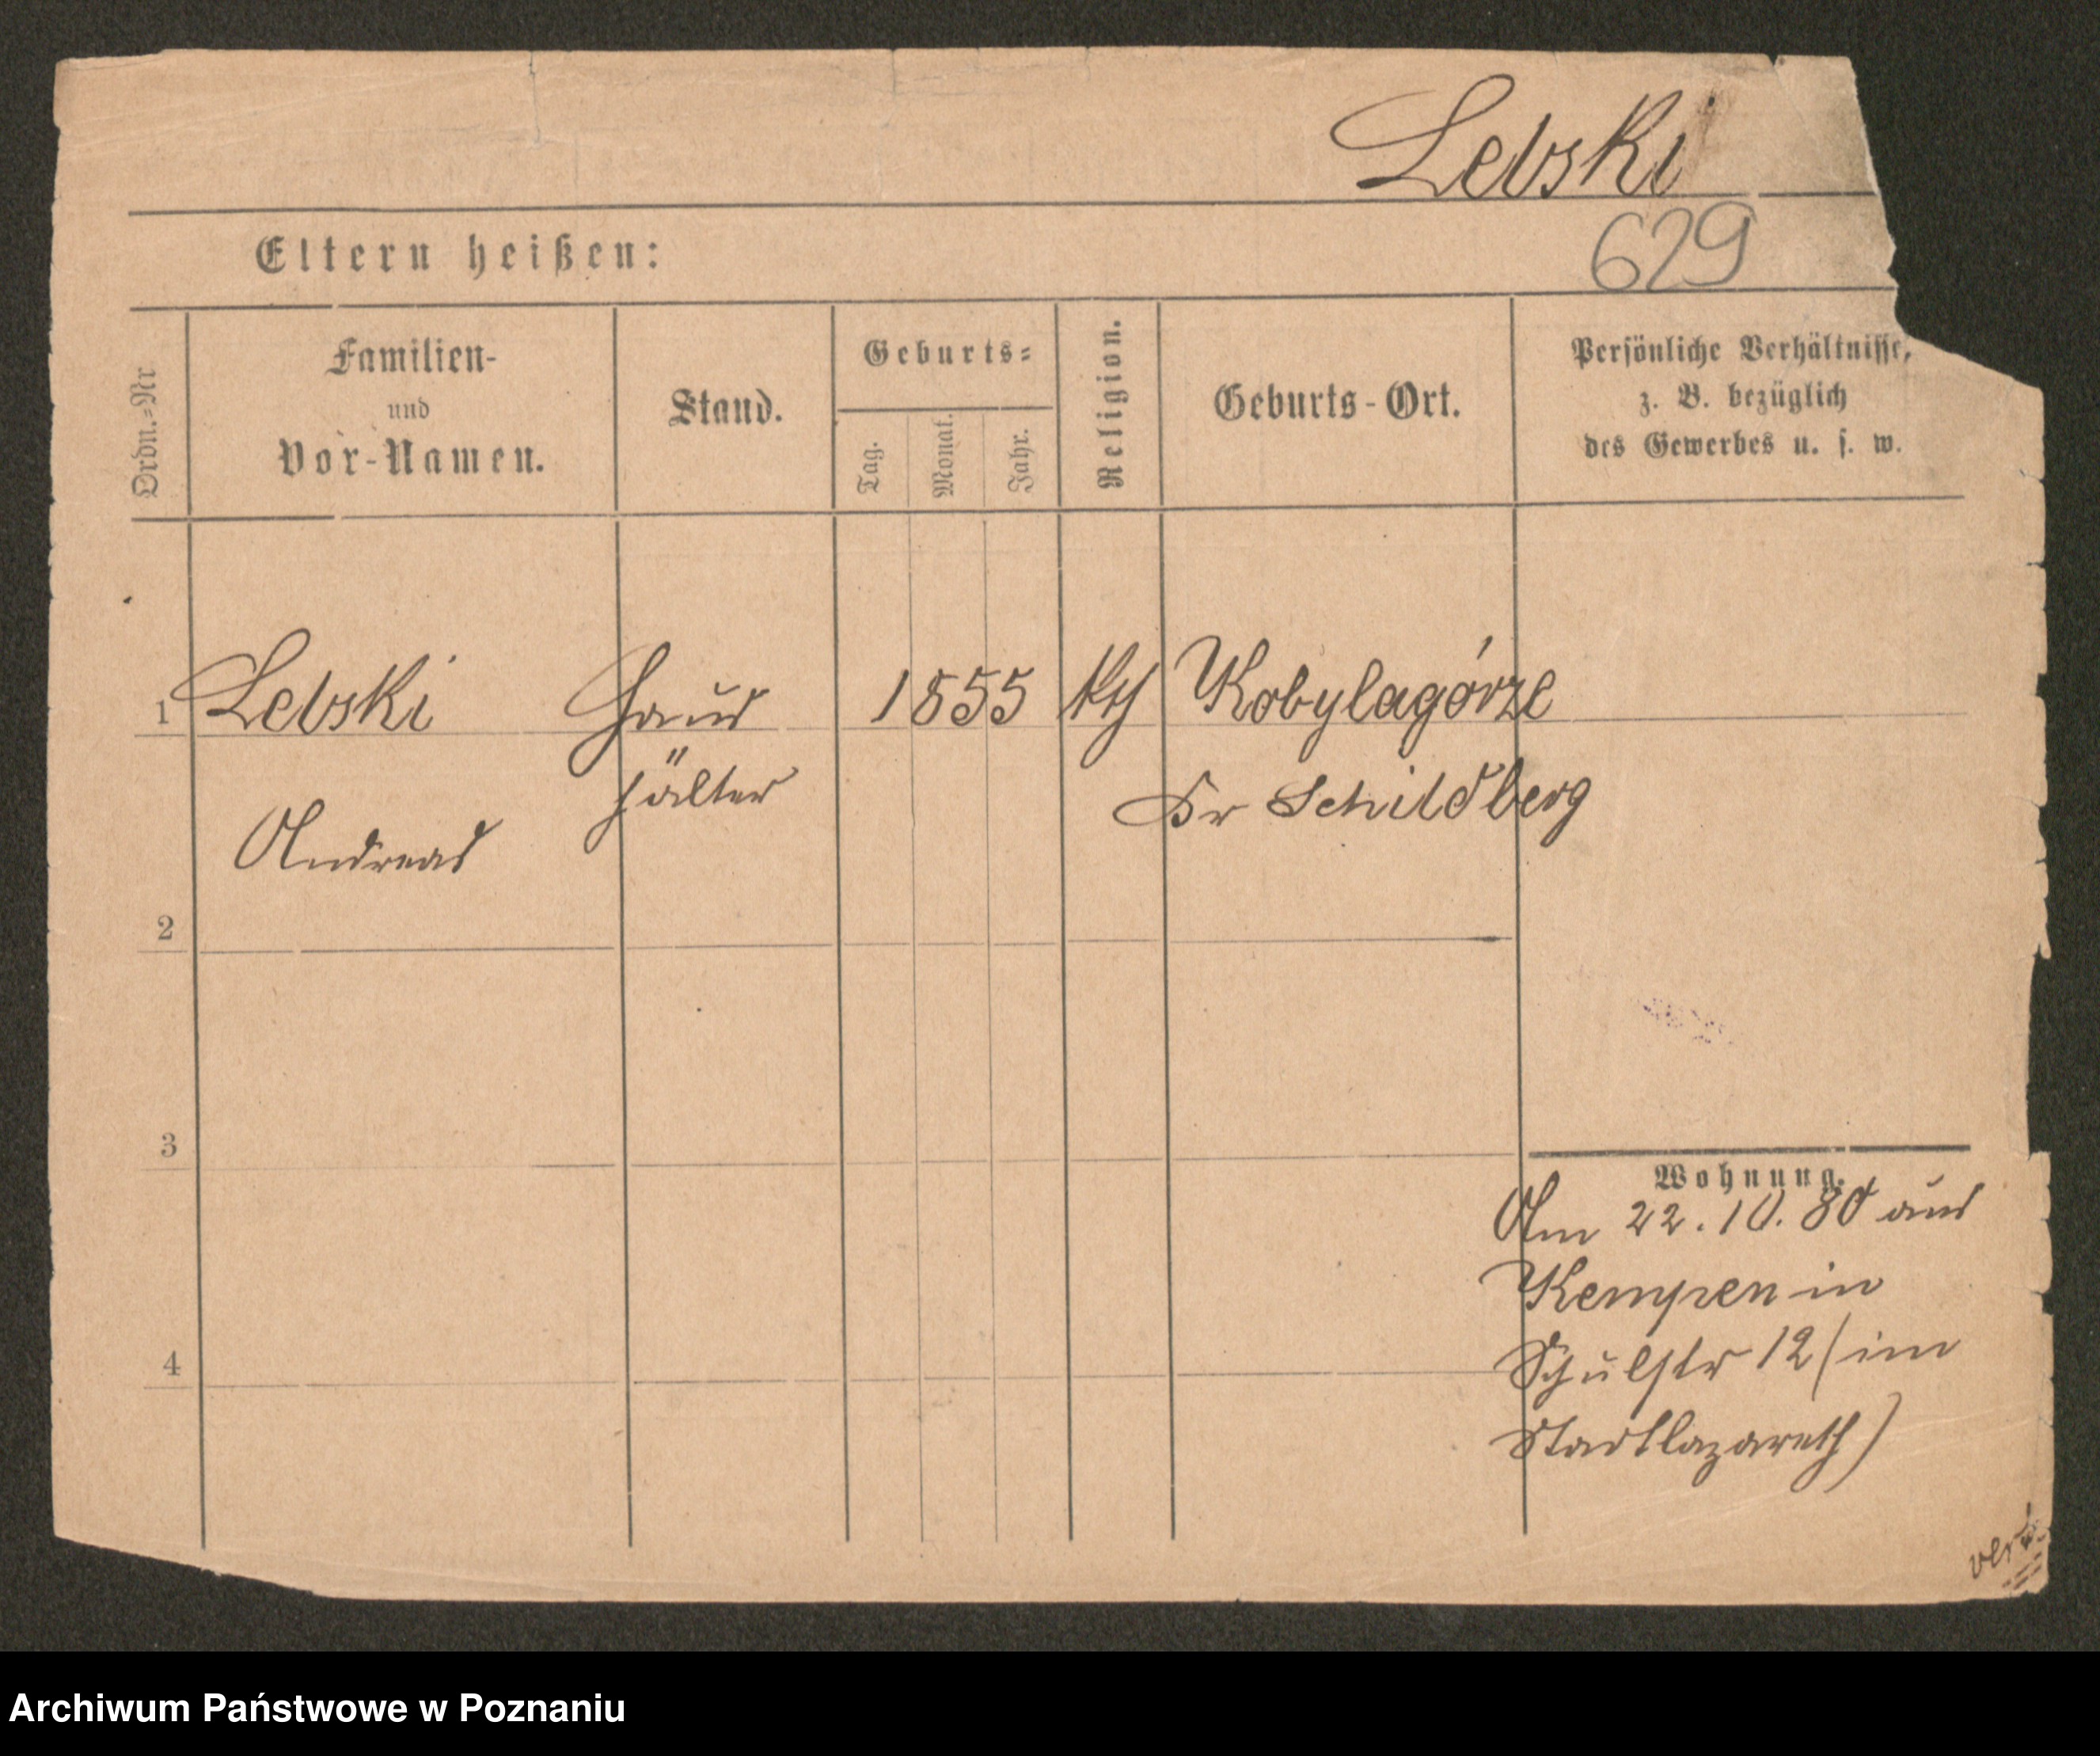 Lebski
629
Eltern heißen:
Ordn.=Nr
Familien-
und
Vor-Namen.
Stand.
Geburts=
Tag.
Monat.
Jahr.
Religion.
Geburts-Ort.
Persönliche Verhältnisse,
z. B. bezüglich
des Gewerbes u. s. w.
1 Lebski Haus 1855 kth Kobylagórze
hälter Kr Schildberg
Andreas
2
3
Wohnung.
Am 22. 10. 80 aus
Kempen in
4
Schulstr 12 (im
Stadtlazareth)
Archiwum Państwowe w Poznaniu